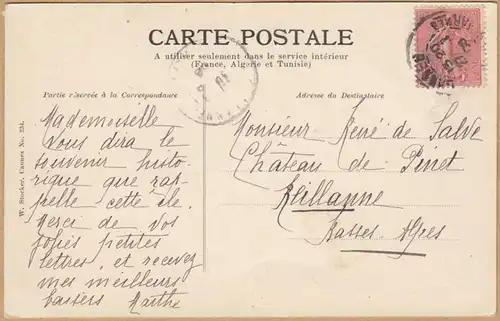 CARTE POSTALE
A utiliser seulement dans le service intérieur
(France, Algerie et Tunisie)
Partie réservée à la Correspondance
Adresse du Destinataire
W. Stocker, Cannes No. 234.
Mademoiselle
Vous dira le
souvenir histo-
rique que rap-
pelle cette île.
Merci de vos
jolies petites
lettres, et recevez
mes meilleurs
baisers Marthe
Monsieur René de Salve
Château de Pinet
Allillanne
Basses-Alpes